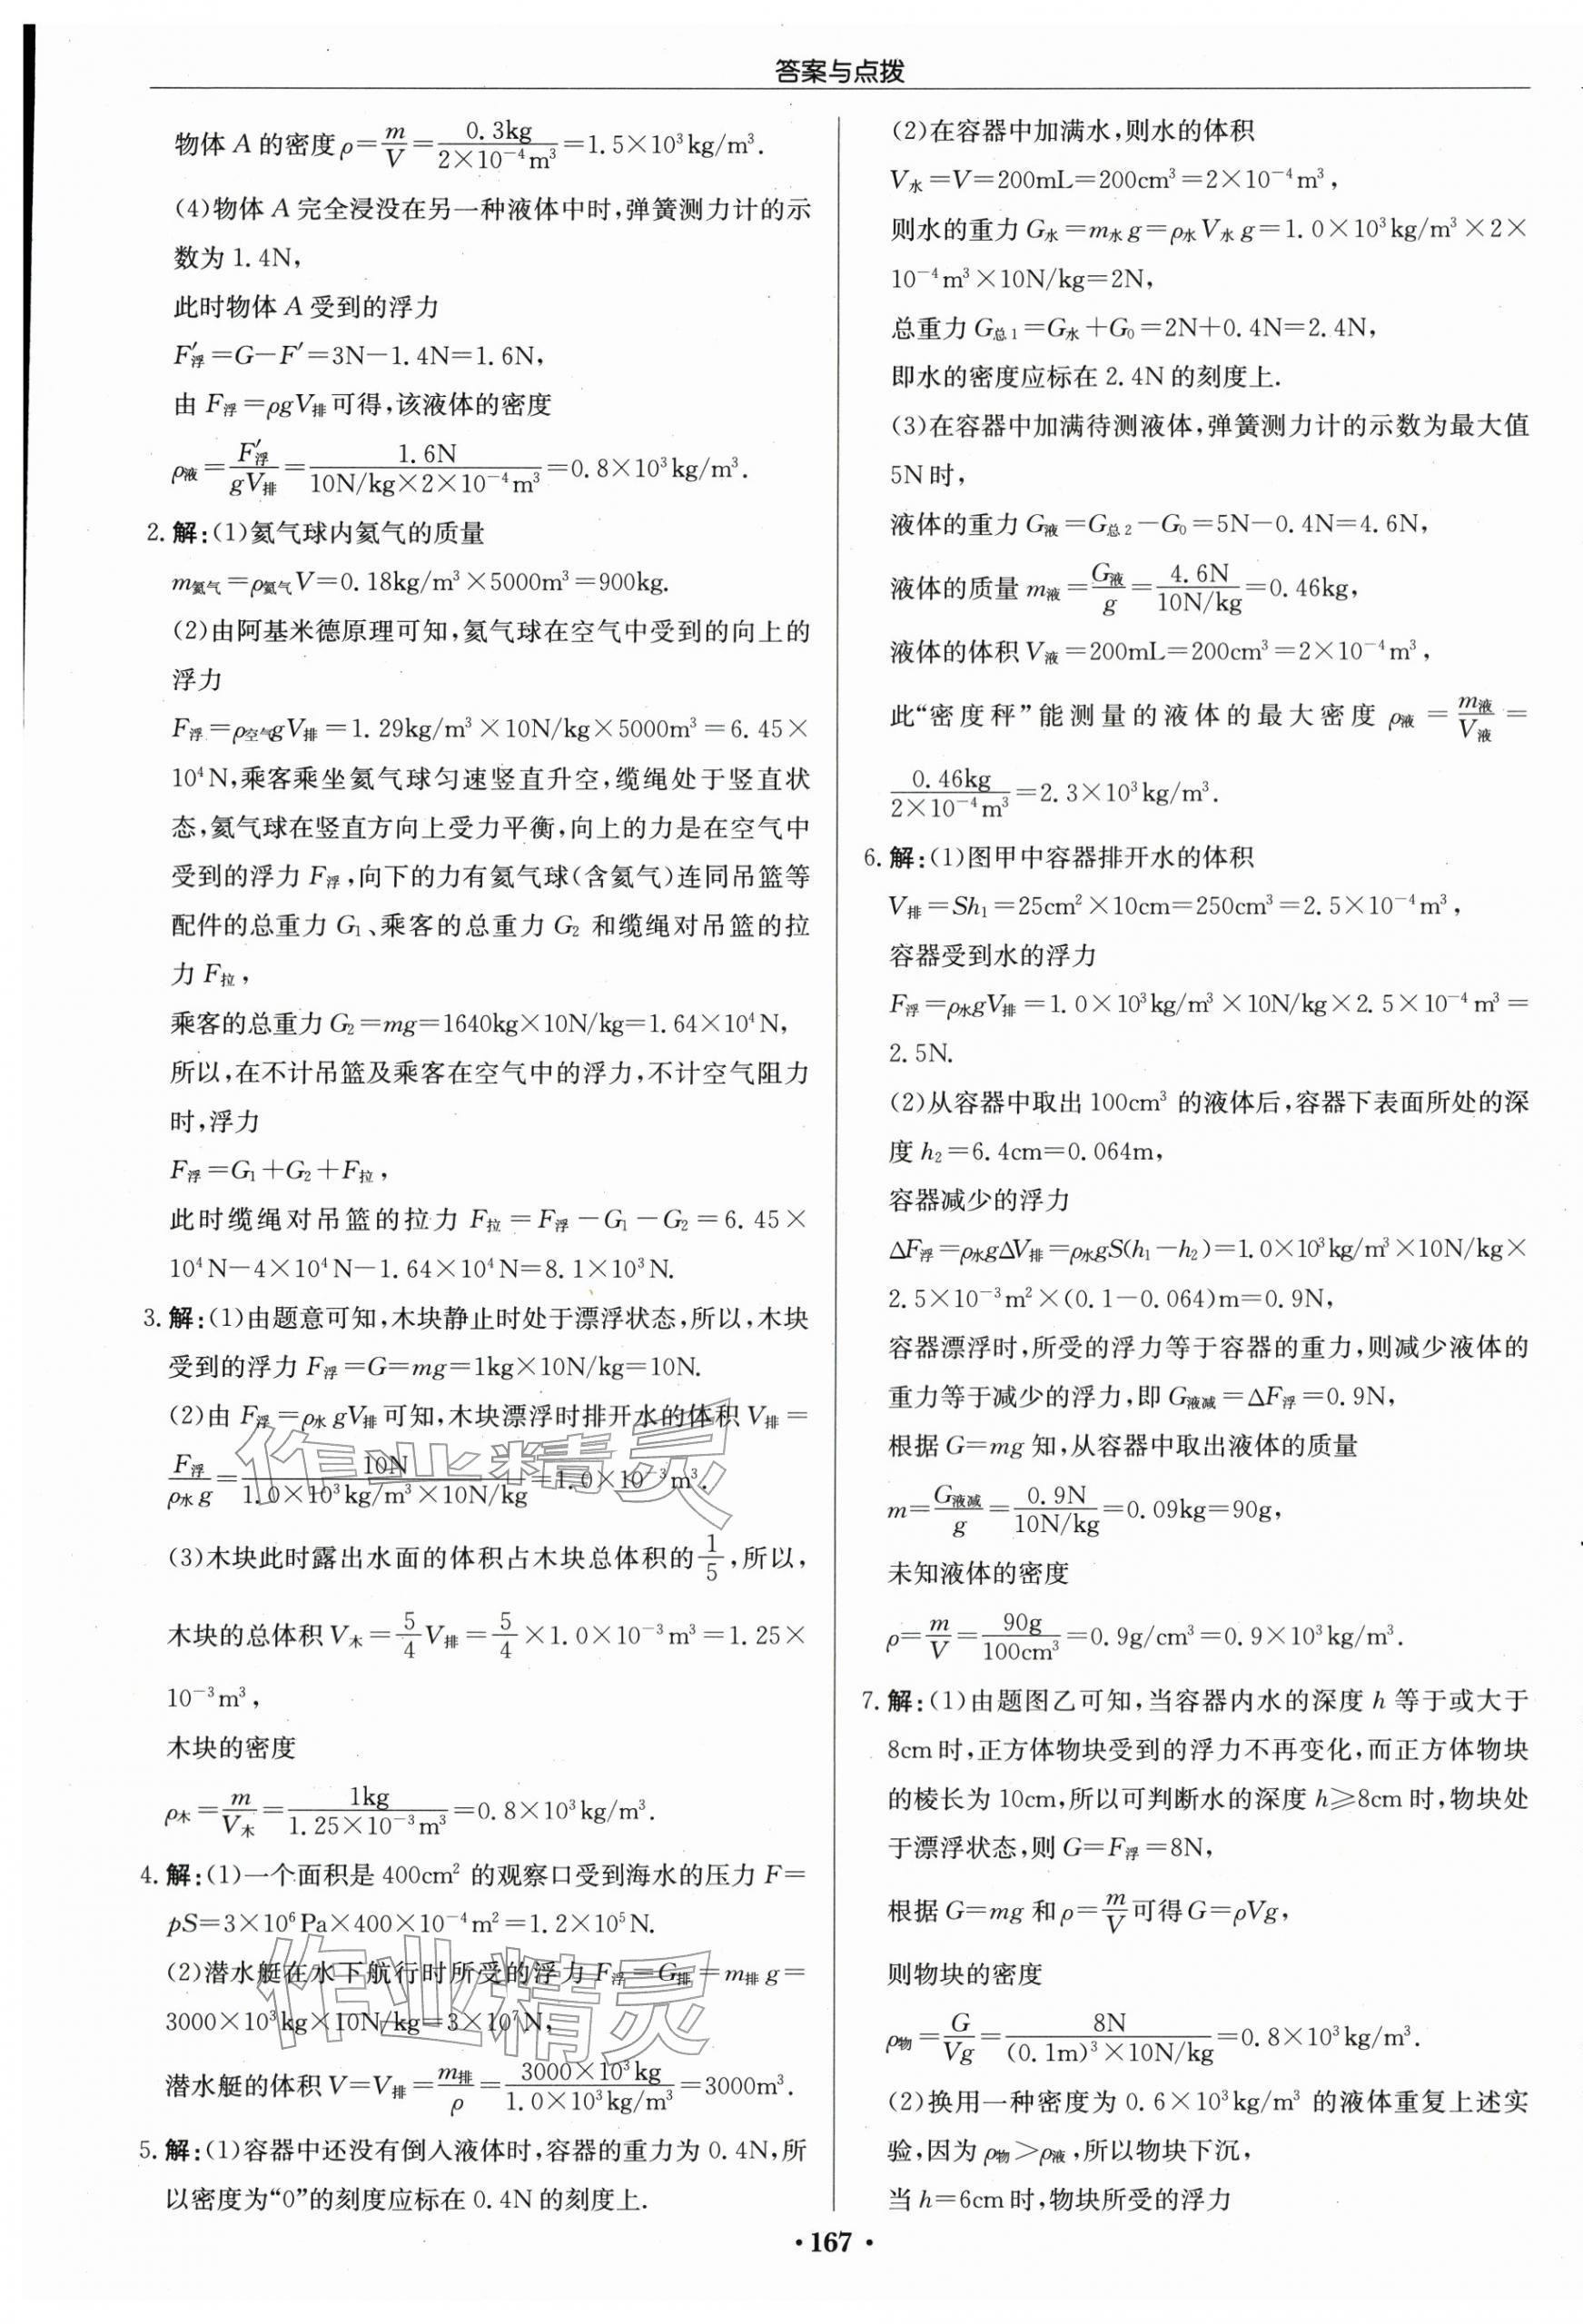 答案与点拨
物体 A 的密度 ρ=m/V=0.3kg/(2×10⁻⁴m³)=1.5×10³kg/m³.
(4)物体 A 完全浸没在另一种液体中时,弹簧测力计的示
数为 1.4N,
此时物体 A 受到的浮力
F′浮=G-F′=3N-1.4N=1.6N,
由 F浮=ρgV排可得,该液体的密度
ρ液=F′浮/(gV排)=1.6N/(10N/kg×2×10⁻⁴m³)=0.8×10³kg/m³.
2.解:(1)氦气球内氦气的质量
m氦气=ρ氦气V=0.18kg/m³×5000m³=900kg.
(2)由阿基米德原理可知,氦气球在空气中受到的向上的
浮力
F浮=ρ空气gV排=1.29kg/m³×10N/kg×5000m³=6.45×
10⁴N,乘客乘坐氦气球匀速竖直升空,缆绳处于竖直状
态,氦气球在竖直方向上受力平衡,向上的力是在空气中
受到的浮力 F浮,向下的力有氦气球(含氦气)连同吊篮等
配件的总重力 G₁、乘客的总重力 G₂ 和缆绳对吊篮的拉
力 F拉,
乘客的总重力 G₂=mg=1640kg×10N/kg=1.64×10⁴N,
所以,在不计吊篮及乘客在空气中的浮力,不计空气阻力
时,浮力
F浮=G₁+G₂+F拉,
此时缆绳对吊篮的拉力 F拉=F浮-G₁-G₂=6.45×
10⁴N-4×10⁴N-1.64×10⁴N=8.1×10³N.
3.解:(1)由题意可知,木块静止时处于漂浮状态,所以,木块
受到的浮力 F浮=G=mg=1kg×10N/kg=10N.
(2)由 F浮=ρ水gV排可知,木块漂浮时排开水的体积 V排=
F浮/(ρ水g)=10N/(1.0×10³kg/m³×10N/kg)=1.0×10⁻³m³.
(3)木块此时露出水面的体积占木块总体积的1/5,所以,
木块的总体积 V木=5/4V排=5/4×1.0×10⁻³m³=1.25×
10⁻³m³,
木块的密度
ρ木=m/V木=1kg/(1.25×10⁻³m³)=0.8×10³kg/m³.
4.解:(1)一个面积是 400cm² 的观察口受到海水的压力 F=
pS=3×10⁶Pa×400×10⁻⁴m²=1.2×10⁵N.
(2)潜水艇在水下航行时所受的浮力 F浮=G排=m排g=
3000×10³kg×10N/kg=3×10⁷N,
潜水艇的体积 V=V排=m排/ρ=3000×10³kg/(1.0×10³kg/m³)=3000m³.
5.解:(1)容器中还没有倒入液体时,容器的重力为 0.4N,所
以密度为“0”的刻度应标在 0.4N 的刻度上.
(2)在容器中加满水,则水的体积
V水=V=200mL=200cm³=2×10⁻⁴m³,
则水的重力 G水=m水g=ρ水V水g=1.0×10³kg/m³×2×
10⁻⁴m³×10N/kg=2N,
总重力 G总1=G水+G₀=2N+0.4N=2.4N,
即水的密度应标在 2.4N 的刻度上.
(3)在容器中加满待测液体,弹簧测力计的示数为最大值
5N时,
液体的重力 G液=G总2-G₀=5N-0.4N=4.6N,
液体的质量 m液=G液/g=4.6N/(10N/kg)=0.46kg,
液体的体积 V液=200mL=200cm³=2×10⁻⁴m³,
此“密度秤”能测量的液体的最大密度 ρ液=m液/V液=
0.46kg/(2×10⁻⁴m³)=2.3×10³kg/m³.
6.解:(1)图甲中容器排开水的体积
V排=Sh₁=25cm²×10cm=250cm³=2.5×10⁻⁴m³,
容器受到水的浮力
F浮=ρ水gV排=1.0×10³kg/m³×10N/kg×2.5×10⁻⁴m³=
2.5N.
(2)从容器中取出 100cm³ 的液体后,容器下表面所处的深
度 h₂=6.4cm=0.064m,
容器减少的浮力
ΔF浮=ρ水gΔV排=ρ水gS(h₁-h₂)=1.0×10³kg/m³×10N/kg×
2.5×10⁻³m²×(0.1-0.064)m=0.9N,
容器漂浮时,所受的浮力等于容器的重力,则减少液体的
重力等于减少的浮力,即 G液减=ΔF浮=0.9N,
根据 G=mg 知,从容器中取出液体的质量
m=G液减/g=0.9N/(10N/kg)=0.09kg=90g,
未知液体的密度
ρ=m/V=90g/100cm³=0.9g/cm³=0.9×10³kg/m³.
7.解:(1)由题图乙可知,当容器内水的深度 h 等于或大于
8cm时,正方体物块受到的浮力不再变化,而正方体物块
的棱长为 10cm,所以可判断水的深度 h≥8cm时,物块处
于漂浮状态,则 G=F浮=8N,
根据 G=mg 和 ρ=m/V可得 G=ρVg,
则物块的密度
ρ物=G/(Vg)=8N/((0.1m)³×10N/kg)=0.8×10³kg/m³.
(2)换用一种密度为 0.6×10³kg/m³ 的液体重复上述实
验,因为 ρ物>ρ液,所以物块下沉,
当 h=6cm时,物块所受的浮力
作业精灵
作业精灵
• 167 •